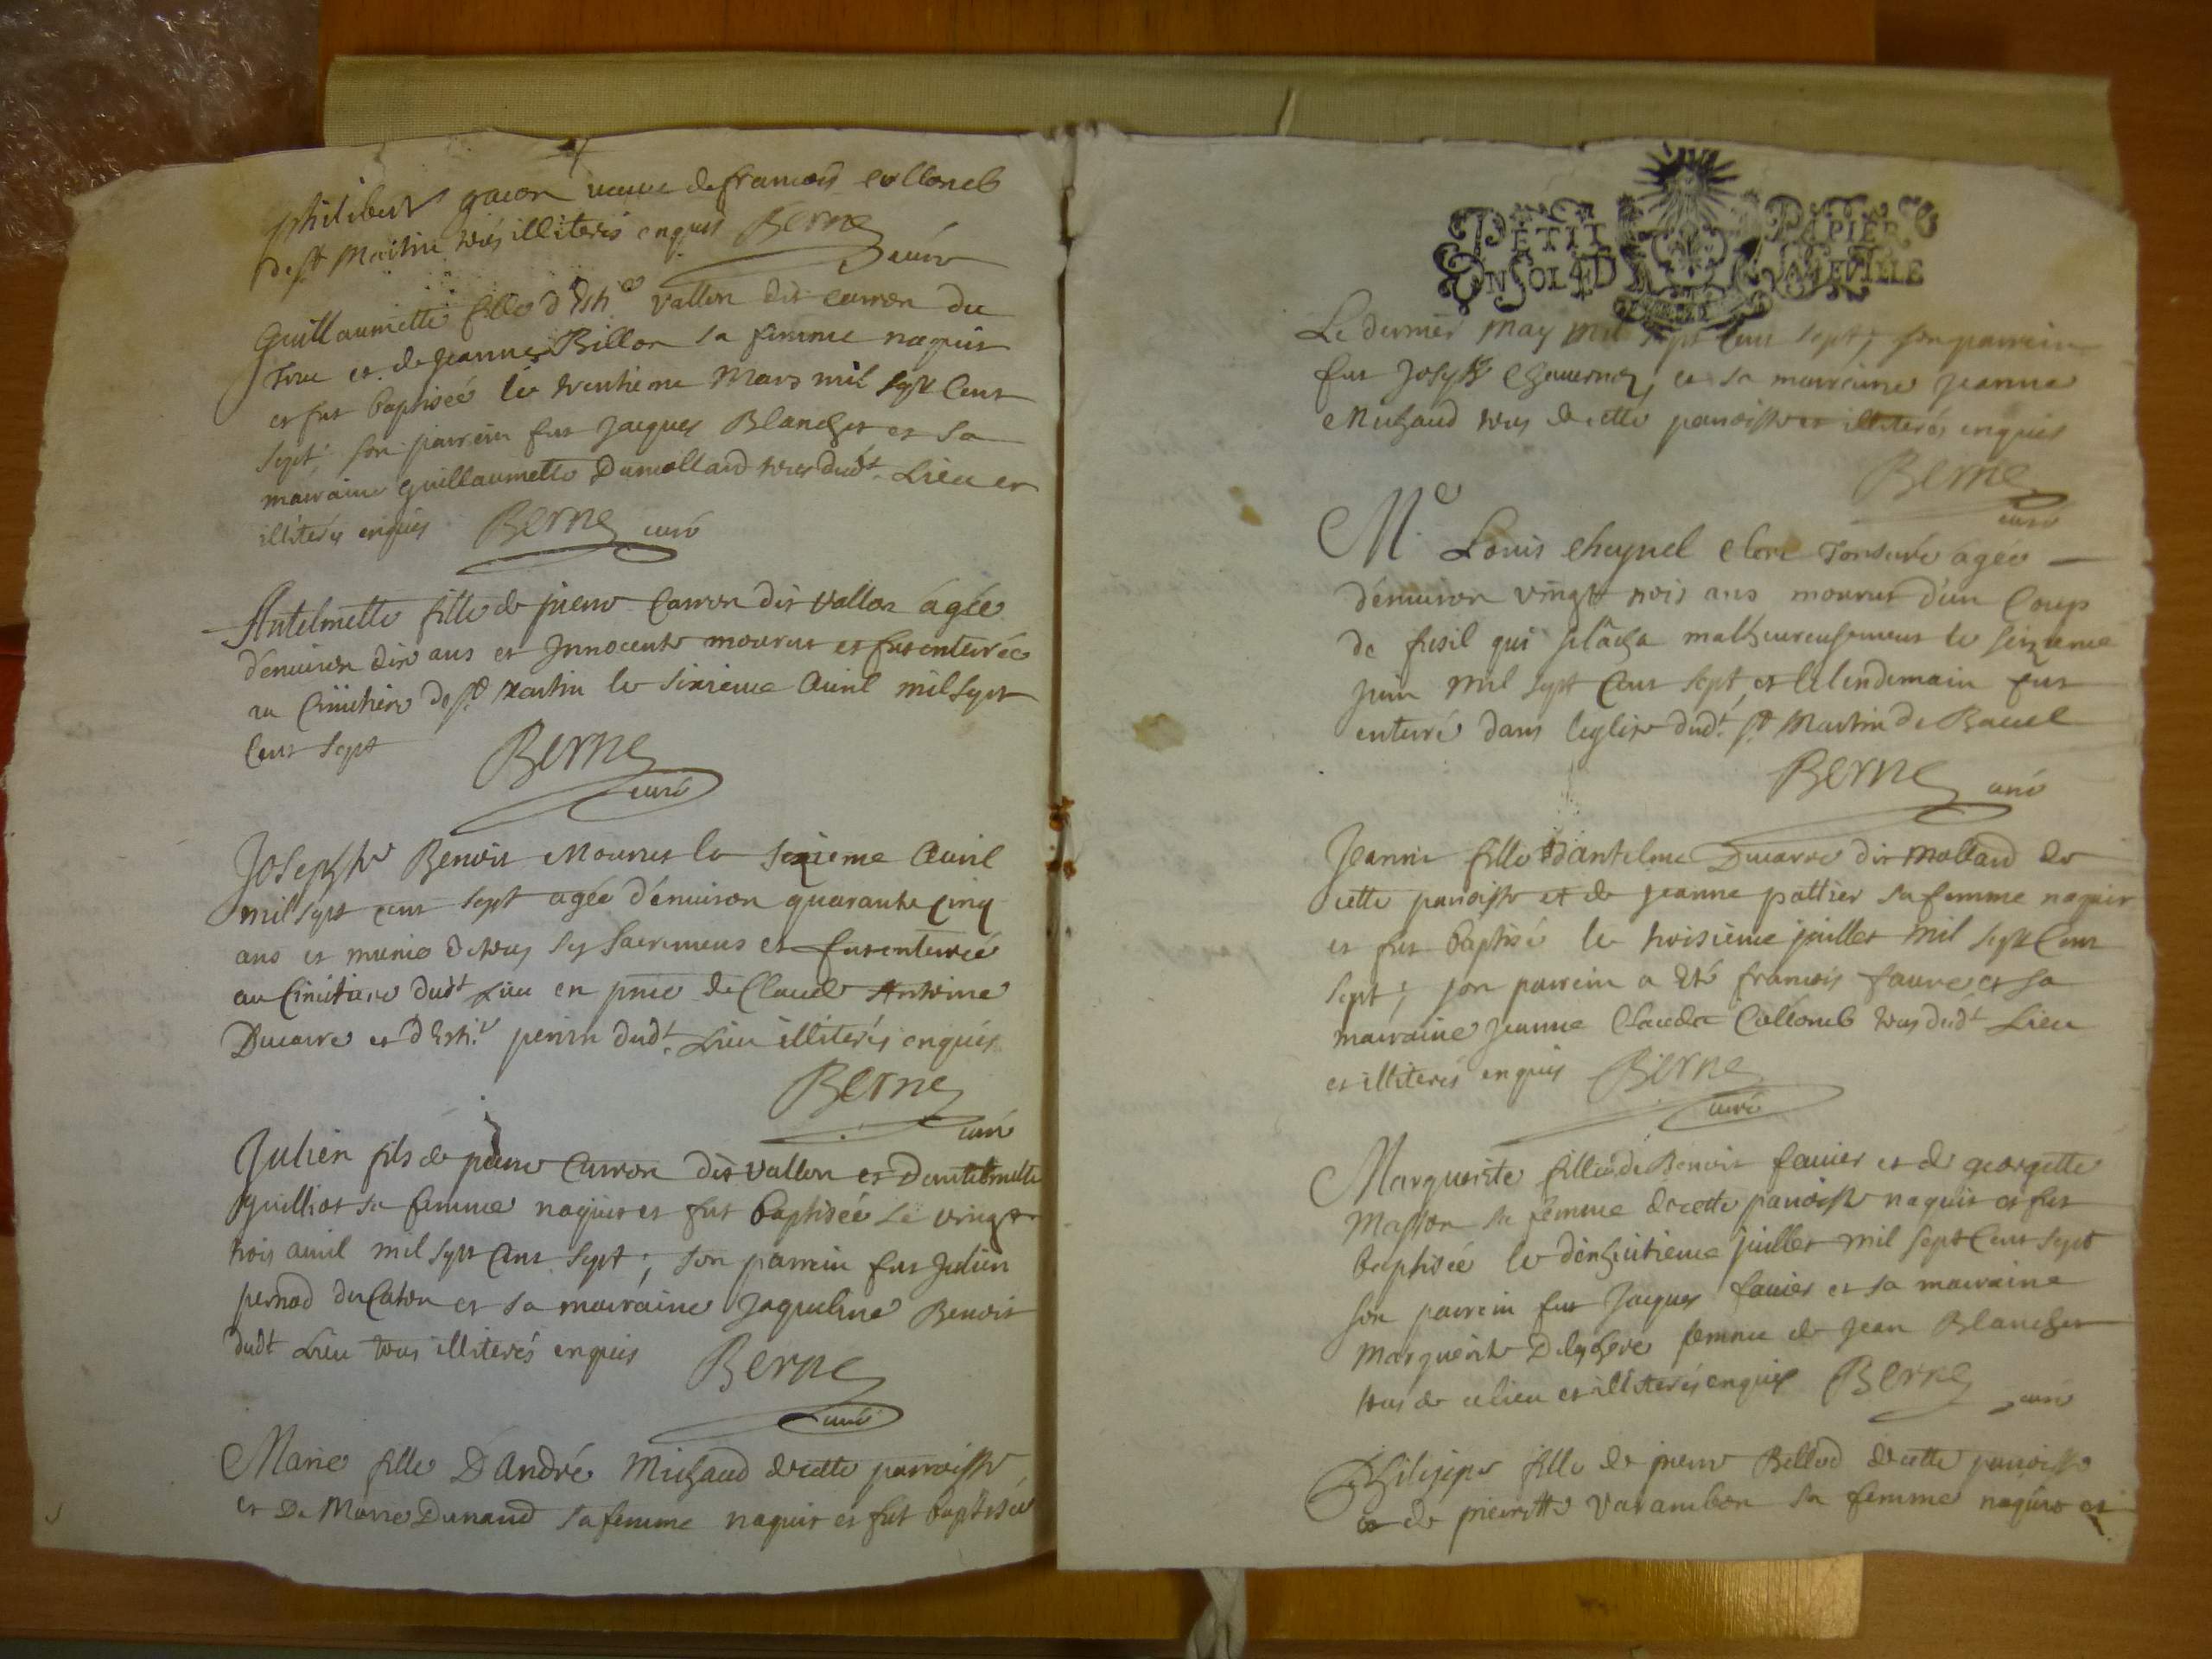 philibert gacon veuve de francois collomb
de St Martin tous illiterés enquis Berne
curé
Guillaumette fille d'Esti.e vallon dit carron du
et de jeanne Billon sa femme naquit
et fut baptisée le trentieme Mars mil sept Cent
sept; son parrein fut jacques Blanchet et sa
marraine guillaumette Dumollard tous dudt. Lieu et
illiterés enquis Berne curé
Antelmette fille de pierre Carron dit vallon agée
d'environ dix ans et Innocente mourut et fut enterrée
au Cimitiere de St Martin le sixieme Avril mil sept
Cent sept Berne
curé
Josephte Benoit Mourut le sezieme Avril
mil sept cent sept agée d'environ quarante Cinq
ans et munie de tous ses sacremens et fut enterrée
au Cimitiere dudt Lieu en pnce de Claude Antoine
Ducarre et d'Esti.e perrin dudt. Lieu illiterés enquis
Berne
curé
Julien fils de pierre Carron dit vallon et D'antelmette
guilliot sa femme naquit et fut baptisée Le vingt
trois avril mil sept Cent sept; son parrein fut Julien
pernod du Caton et sa marraine Jaqueline Benoit
dudt Lieu tous illiterés enquis Berne
curé
Marie fille D'André Michaud de cette parroisse
et De Marie Dunand sa femme naquit et fut baptisée
PETIT PAPIER
UN SOL 4 D LA FEUILLE
Le dernier May mil sept Cent sept; son parrein
fut Joseph et sa marraine Jeanne
Michaud tous de cette paroisse et illiterés enquis
Berne
curé
M.e Louis Cheynel Clerc Tonsuré agée
d'environ vingt trois ans mourut d'un Coup
de fusil qui se lâcha malheureusement le seizieme
juin mil sept Cent sept, et le lendemain fut
enterré dans l'eglise dudt. St Martin de Bavel
Berne curé
Jeanne fille d'antelme Ducarre dit Mollard de
cette paroisse et de jeanne pattier sa femme naquit
et fut baptisé le troisieme juillet mil sept Cent
sept; son parrein a eté francois faure et sa
marraine Jeanne Clauda Collomb tous dudt Lieu
et illiterés enquis Berne
curé
Marguerite fille de Benoit favier et de georgette
Masson sa femme de cette paroisse naquit et fut
baptisée le dixhuitieme juillet mil sept Cent sept
son parrein fut Jacques favier et sa marraine
Marguerite femme de Jean Blanchet
tous de ce lieu et illiterés enquis Berne
curé
Philippe fille de pierre Billod de cette paroisse
et de pierrette Varambon sa femme naquit et